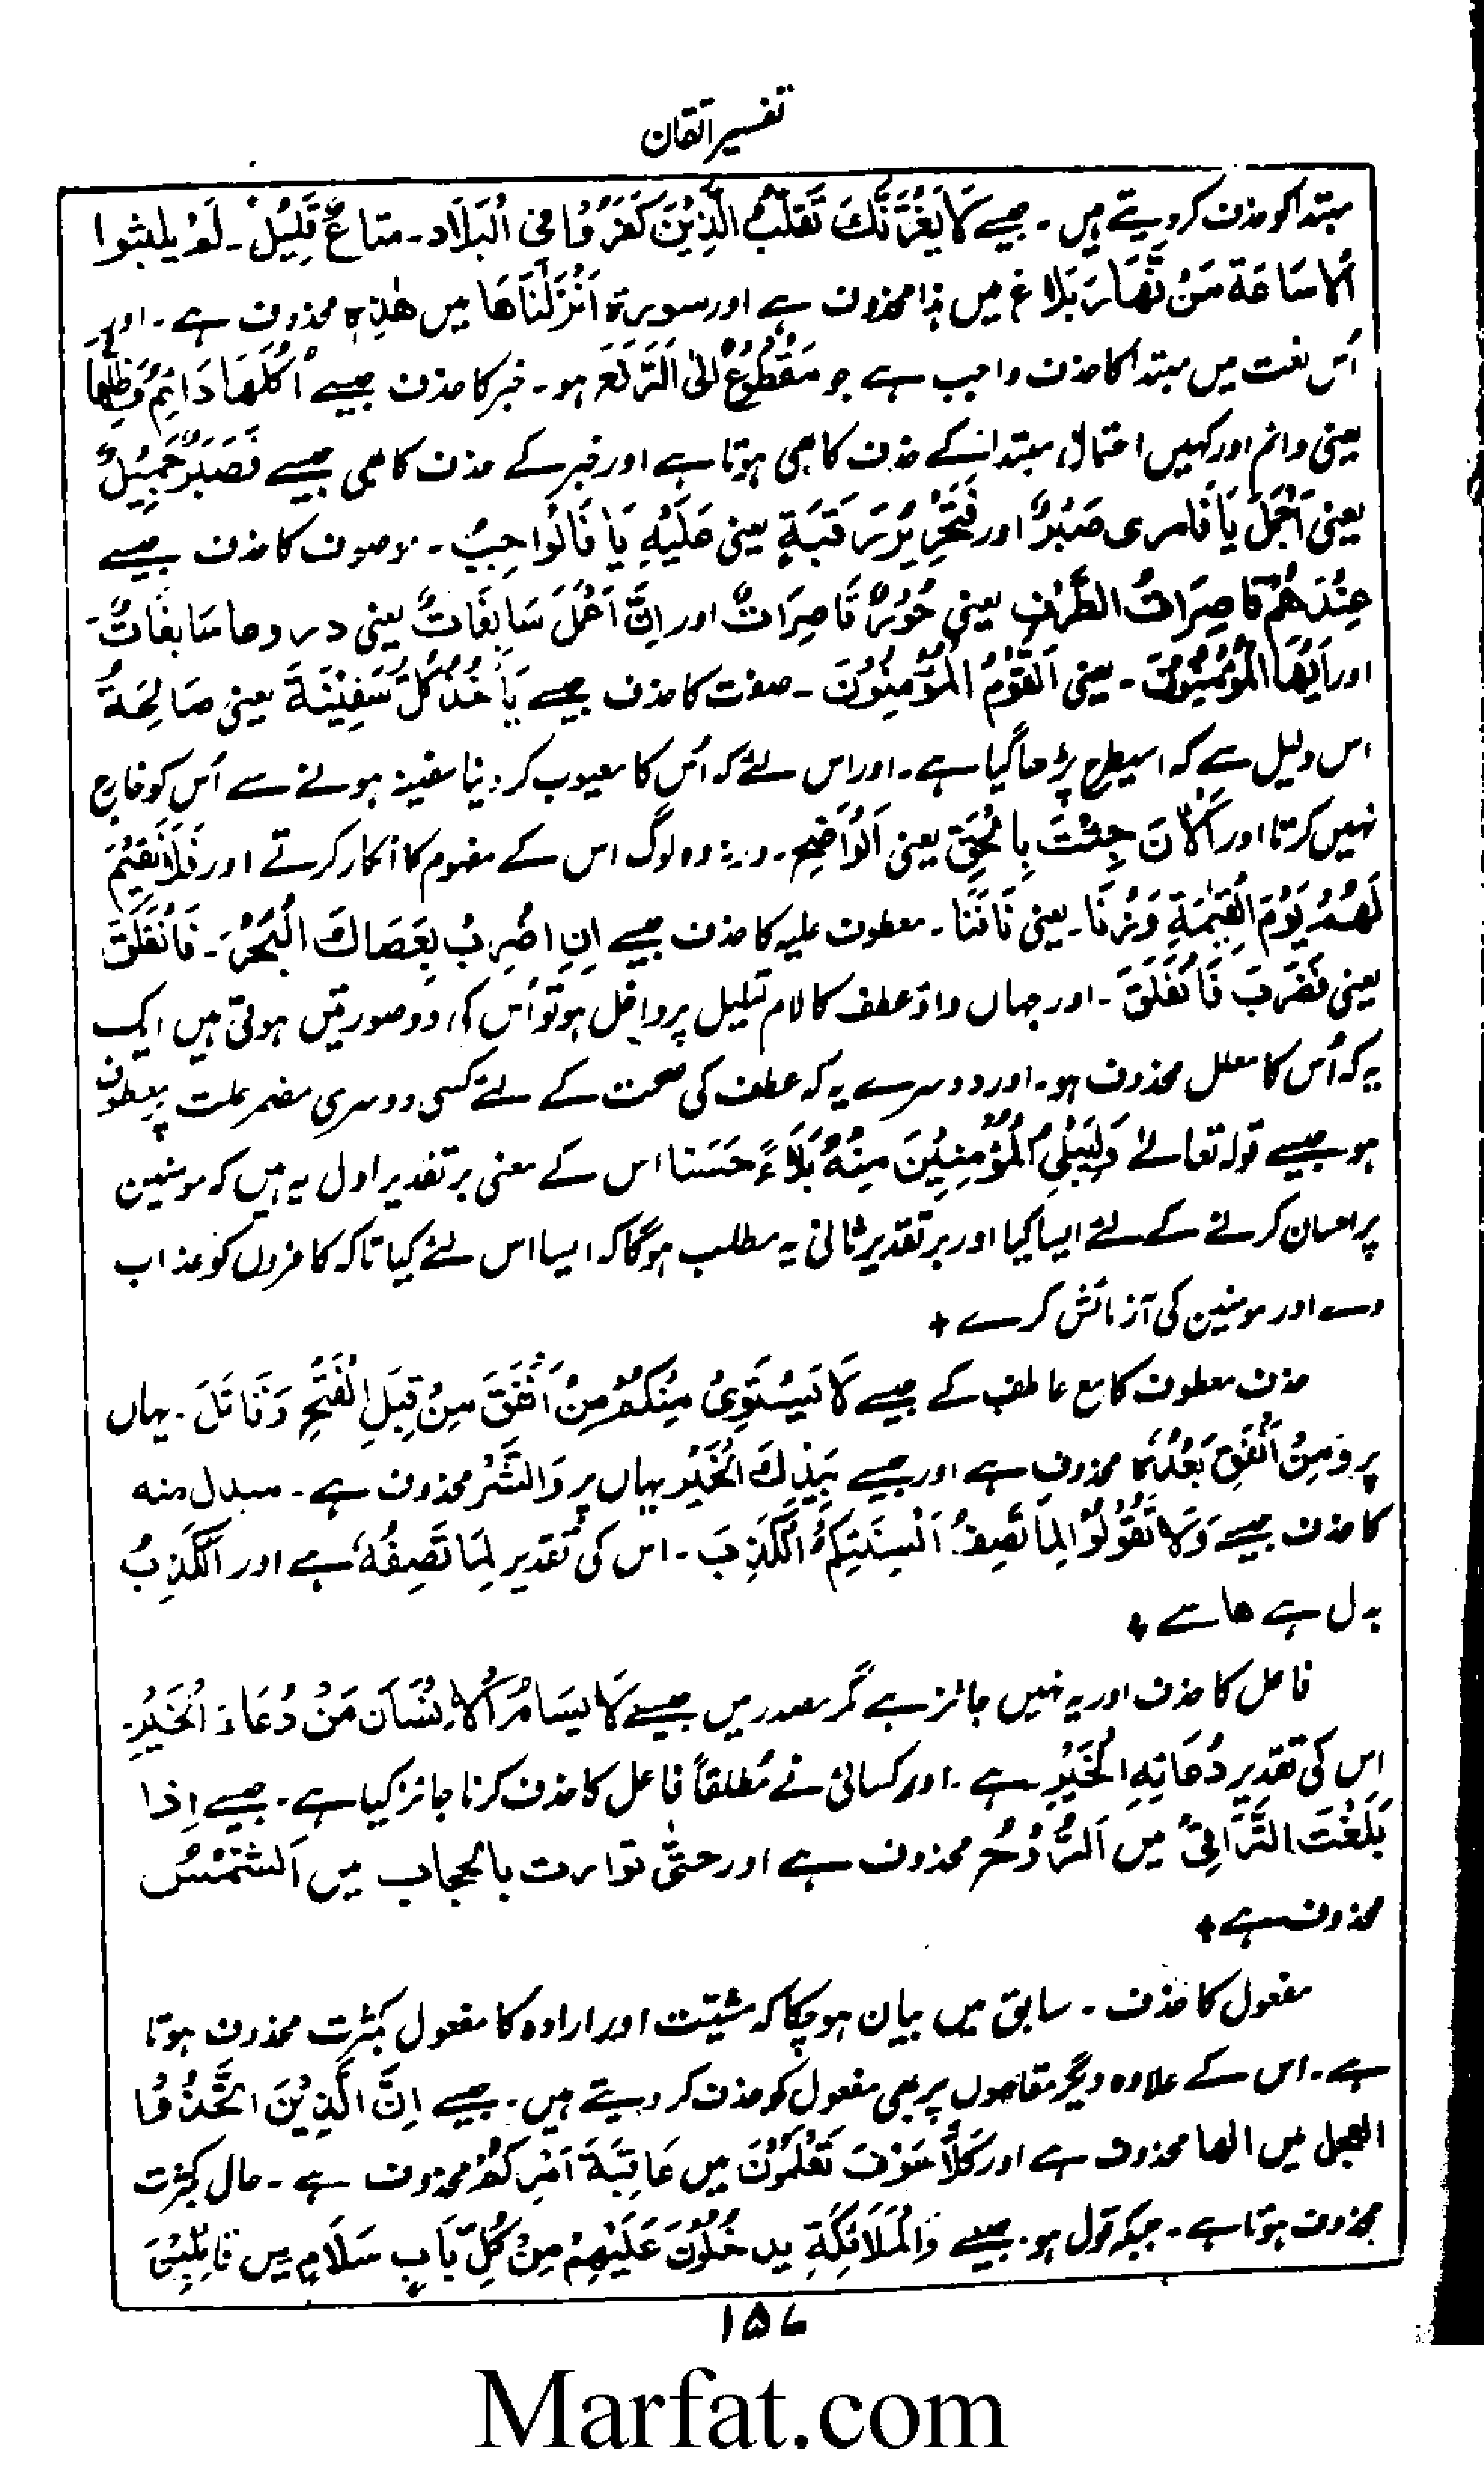 تفسیر اتقان
مبتدا کو حذف کر دیتے ہیں۔ جیسے لَا یَغُرَّنَّكَ تَقَلُّبُ الَّذِیْنَ كَفَرُوْا فِی الْبِلَاد۔ متاعٌ قَلِیْلٌ۔ لَمْ یلبثوا
اِلَّا سَاعَة مَنْ نَّهَارٍ بَلَاغ میں ہٰذا محذوف ہے اور سورة اَنْزَلْنَاهَا میں هٰذِهٖ محذوف ہے۔ اور
اُس نعت میں مبتدا کا حذف واجب ہے جو مَقْطُوْعٌ اِلَی الرَّفْعَ ہو۔ خبر کا حذف جیسے اُكُلُهَا دَائِمٌ وَظِلُّهَا
یعنی دائم اور کہیں احتمال مبتدا کے حذف کا بھی ہوتا ہے اور خبر کے حذف کا بھی جیسے فَصَبْرٌ جَمِیْلٌ
یعنی اَجْمَلَ یَا فامری صَبْرٌ اور فَتَحْرِیْرُ رَقَبَةٍ یعنی عَلَیْهِ یَا فَالْوَاجِبُ۔ موصوف کا حذف جیسے
عِنْدَهُمْ قَاصِرَاتُ الطَّرْفِ یعنی حُوْرٌ قَاصِرَاتٌ اور اِنَّ اَعْمَلَ سَابِغَاتٌ یعنی دروعا سَابغَاتٌ
اور اَیُّهَا الْمُؤْمِنُوْنَ۔ یعنی اَلْقَوْمُ الْمُؤْمِنُوْنَ۔ صفت کا حذف جیسے یَأْخُذُ كُلَّ سَفِیْنَةَ یعنی صَالِحَةٌ
اس دلیل سے کہ اسیطرح پڑھا گیا ہے۔ اور اس لئے کہ اُس کا معیوب کر دینا سفینہ ہونے سے اُس کو خارج
نہیں کرتا اور اَلْاٰنَ جِئْتَ بِالْحَقِّ یعنی اَلْوَاضِحِ۔ ورنہ وہ لوگ اس کے مفہوم کا انکار کرتے اور فَلَا نُقِیْمُ
لَهُمْ یَوْمَ الْقِیٰمَةِ وَزْنَا۔ یعنی نَافَنَا۔ معطوف علیہ کا حذف جیسے اِنِ اضْرِبْ بِعَصَاكَ الْبَحْرَ۔ فَانْفَلَقَ
یعنی فَضَرَبَ فَانْفَلَقَ۔ اور جہاں واؤ عطف کا لام تعلیل پر داخل ہو تو اُس کی دو صورتیں ہوتی ہیں ایک
یہ کہ اُس کا معلل محذوف ہو۔ اور دوسرے یہ کہ عطف کی صحت کے لئے کسی دوسری مضمر علت پر معطوف
ہو جیسے قولہ تعالےٰ وَلِیُبْلِیَ الْمُؤْمِنِیْنَ مِنْهُ بَلَاءً حَسَنا اس کے معنی بر تقدیر اول یہ ہیں کہ مومنین
پر احسان کرنے کے لئے ایسا کیا اور بر تقدیر ثانی یہ مطلب ہوگا کہ ایسا اس لئے کیا تاکہ کافروں کو عذاب
دے اور مومنین کی آزمائش کرے +
حذف معطوف کا مع عاطف کے جیسے لَا یَسْتَوِیْ مِنْكُمْ مِنْ اَنْفَقَ مِنْ قَبْلِ الْفَتْحِ وَقَاتَلَ۔ یہاں
پر وَمِنْ اَنْفَقَ بَعْدَهٗ محذوف ہے اور جیسے بَیَدِكَ الْخَیْر یہاں پر وَالشَّرّ محذوف ہے۔ مبدل منہ
کا حذف جیسے وَلَا تَقُوْلُوْا لِمَا تَصِفُ اَلْسِنَتِكُمُ الْكَذِبَ۔ اس کی تقدیر لِمَا تَصِفُهٗ ہے اور اَلْكَذِبُ
بدل ہے ھا سے +
فاعل کا حذف اور یہ نہیں جائز ہے مگر مصدر میں جیسے لَا یَسَامُ الْاِنْسَانَ مَنْ دُعَاءَ الْخَیْرِ
اس کی تقدیر دُعَائِهِ الْخَیْرَ ہے۔ اور کسائی نے مُطلقاً فاعل کا حذف کرنا جائز کیا ہے۔ جیسے اِذا
بَلَغْتَ التَّرَاقِیَ میں اَلرُّوْحُ محذوف ہے اور حتّٰی توارت بالحجاب میں اَلشَّمْسُ
محذوف ہے +
مفعول کا حذف۔ سابق میں بیان ہو چکا کہ مشیّت اور ارادہ کا مفعول بکثرت محذوف ہوتا
ہے۔ اس کے علاوہ دیگر مقاموں پر بھی مفعول کو حذف کر دیتے ہیں۔ جیسے اِنَّ الَّذِیْنَ اتَّخَذُوْا
العجل میں الھا محذوف ہے اور كَلَّا سَوْفَ تَعْلَمُوْنَ میں عَاقِبَةَ اَمْرِكُمْ محذوف ہے۔ حال بکثرت
محذوف ہوتا ہے۔ جبکہ قول ہو۔ جیسے وَالْمَلَائِكَةِ یدخُلُوْنَ عَلَیْهِمْ مِنْ كُلِّ بَابٍ سَلَامٍ میں قَائِلِیْنَ
۱۵۷
Marfat.com